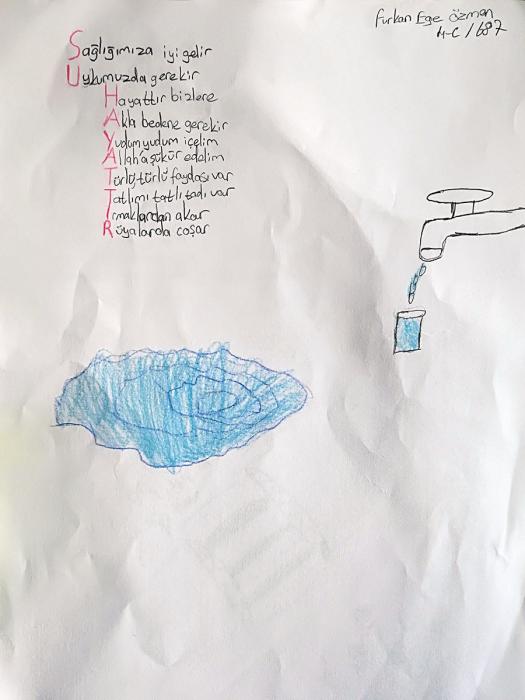 Furkan Ege Özman
4-C / 687
Sağlığımıza iyi gelir
Uykumuzda gerekir
Hayattır bizlere
Akla bedene gerekir
Yudum yudum içelim
Allah'a şükür edelim
Türlü türlü faydası var
Tatlımı tatlı tadı var
Irmaklardan akar
Rüyalarda coşar